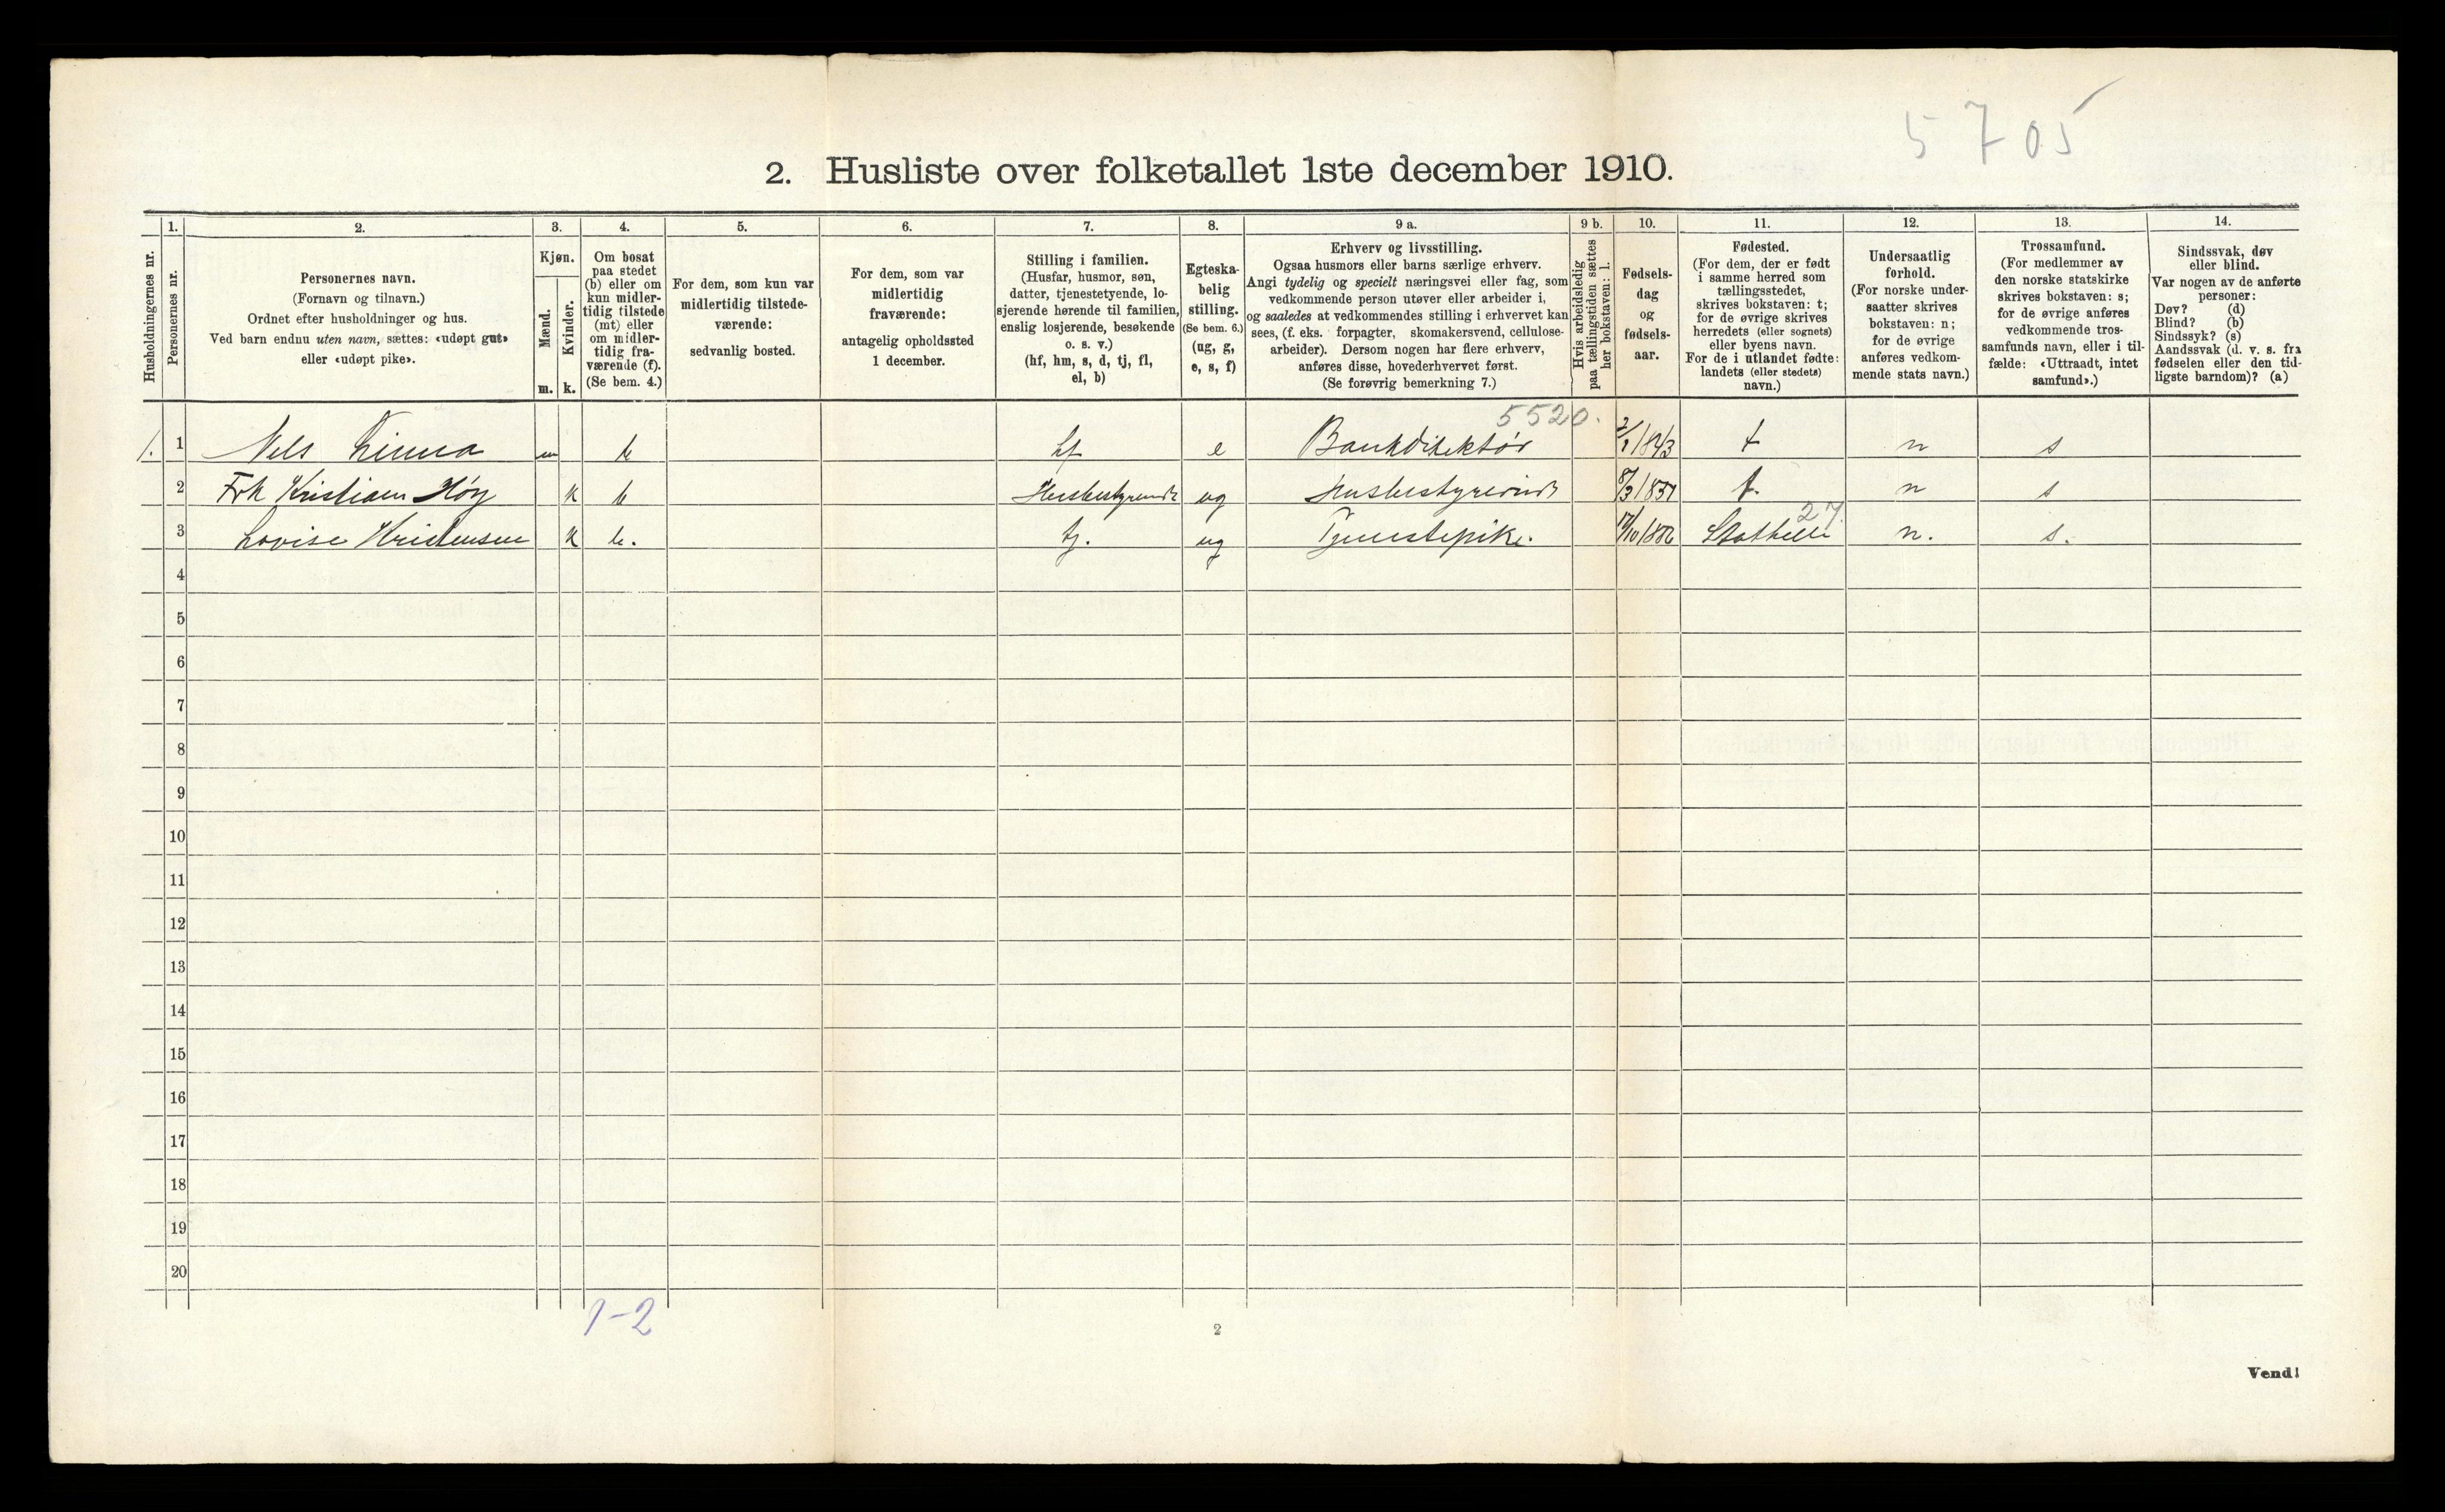 5705
2. Husliste over folketallet 1ste december 1910.
Husholdningernes nr.
1.
Personernes nr.
2.
Personernes navn.
(Fornavn og tilnavn.)
Ordnet efter husholdninger og hus.
Ved barn endnu uten navn, sættes: «udøpt gut»
eller «udøpt pike».
3.
Kjøn.
Mænd.
Kvinder.
m. k.
4.
Om bosat
paa stedet
(b) eller om
kun midler-
tidig tilstede
(mt) eller
om midler-
tidig fra-
værende (f).
(Se bem. 4.)
5.
For dem, som kun var
midlertidig tilstede-
værende:
sedvanlig bosted.
6.
For dem, som var
midlertidig
fraværende:
antagelig opholdssted
1 december.
7.
Stilling i familien.
(Husfar, husmor, søn,
datter, tjenestetyende, lo-
sjerende hørende til familien,
enslig losjerende, besøkende
o. s. v.)
(hf, hm, s, d, tj, fl,
el, b)
8.
Egteska-
belig
stilling.
(Se bem. 6.)
(ug, g,
e, s, f)
9 a.
Erhverv og livsstilling.
Ogsaa husmors eller barns særlige erhverv.
Angi tydelig og specielt næringsvei eller fag, som
vedkommende person utøver eller arbeider i,
og saaledes at vedkommendes stilling i erhvervet kan
sees, (f. eks. forpagter, skomakersvend, cellulose-
arbeider). Dersom nogen har flere erhverv,
anføres disse, hovederhvervet først.
(Se forøvrig bemerkning 7.)
9 b.
Hvis arbeidsledig
paa tællingstiden sættes
her bokstaven: l.
10.
Fødsels-
dag
og
fødsels-
aar.
11.
Fødested.
(For dem, der er født
i samme herred som
tællingsstedet,
skrives bokstaven: t;
for de øvrige skrives
herredets (eller sognets)
eller byens navn.
For de i utlandet fødte:
landets (eller stedets)
navn.)
12.
Undersaatlig
forhold.
(For norske under-
saatter skrives
bokstaven: n;
for de øvrige
anføres vedkom-
mende stats navn.)
13.
Trossamfund.
(For medlemmer av
den norske statskirke
skrives bokstaven: s;
for de øvrige anføres
vedkommende tros-
samfunds navn, eller i til-
fælde: «Uttraadt, intet
samfund».)
14.
Sindssvak, døv
eller blind.
Var nogen av de anførte
personer:
Døv? (d)
Blind? (b)
Sindssyk? (s)
Aandssvak (d. v. s. fra
fødselen eller den tid-
ligste barndom)? (a)
5520.
1. 1 Nels Linna m b hf e Bankdirektør 1843 t n s
2 Frk Kristiane Höy k b Husbestyrerinde ug Husbestyrerinde 8/3 1837 t. n s
27
3 Lovise Kristensen k b. tj. ug Tjenestepike. 17/10 1886 Stathelle n. s.
4
5
6
7
8
9
10
11
12
13
14
15
16
17
18
19
20
1-2
2
Vend!